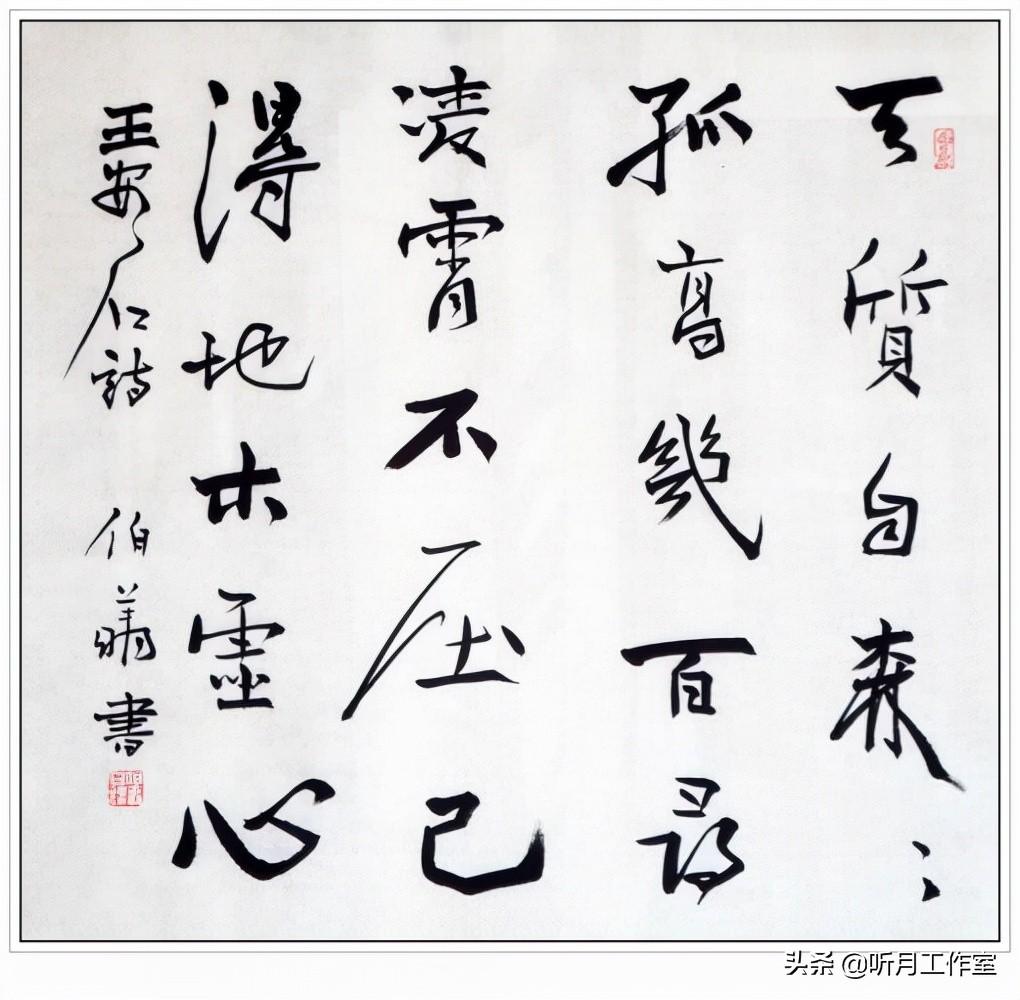 天質自森〻
孤高幾百尋
凌霄不压己
得地木霊心
王安仁詩 伯書
头条 @听月工作室